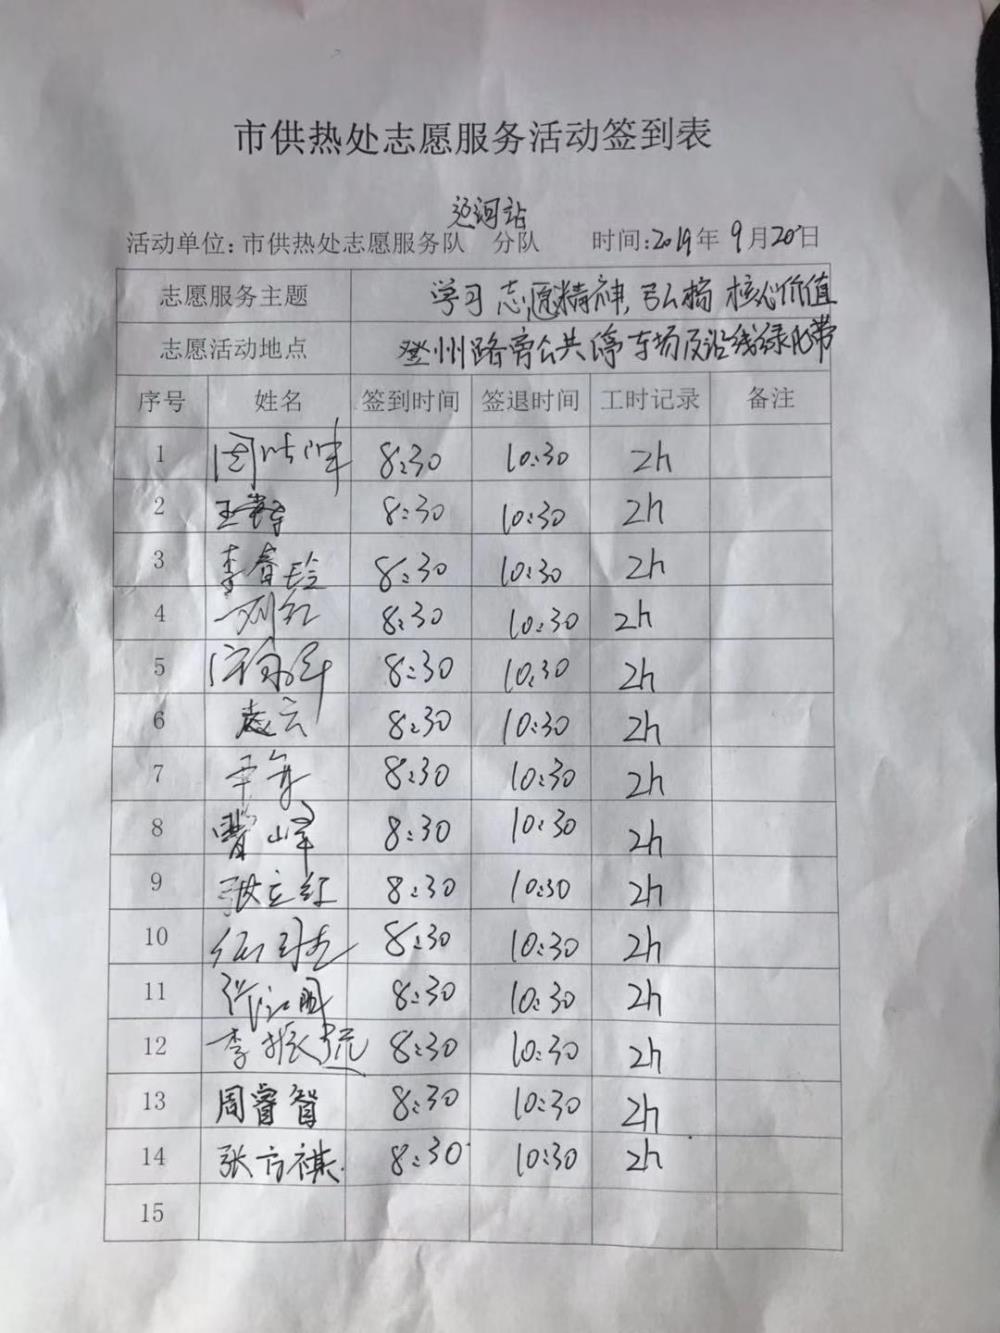 市供热处志愿服务活动签到表
运河站
活动单位:市供热处志愿服务队 分队 时间:2019年9月20日
志愿服务主题 学习志愿精神,弘扬核心价值
志愿活动地点 登州路旁公共停车场及沿线绿化带
序号 姓名 签到时间 签退时间 工时记录 备注
1 8:30 10:30 2h
2 8:30 10:30 2h
3 李春玲 8:30 10:30 2h
4 刘红 8:30 10:30 2h
5 8:30 10:30 2h
6 8:30 10:30 2h
7 8:30 10:30 2h
8 8:30 10:30 2h
9 张立红 8:30 10:30 2h
10 8:30 10:30 2h
11 8:30 10:30 2h
12 李振远 8:30 10:30 2h
13 周睿智 8:30 10:30 2h
14 张方祺 8:30 10:30 2h
15